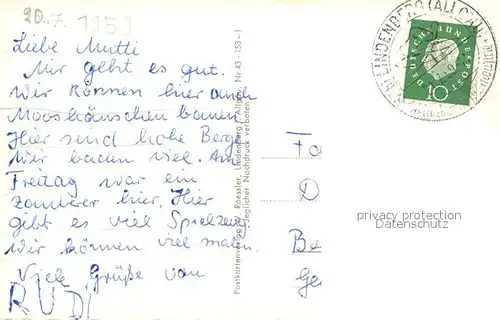 20.7. 1959
Liebe Mutti
Mir geht es gut.
Wir können hier auch
Mooshäuschen bauen.
Hier sind hohe Berge
Wir baden viel. Am
Freitag war ein
zauberer hier. Hier
gibt es viel Spielzeug
Wir können viel malen.
Viele Grüße von
RUDI
Postkartenverlag Roessler, Lindenberg / Allgäu Nr. A3-153-1
Jeglicher Nachdruck verboten
LINDENBERG (ALLGÄU)
DEUTSCHE BUNDESPOST
10
Fa
D
Be
Ge
privacy protection
Datenschutz